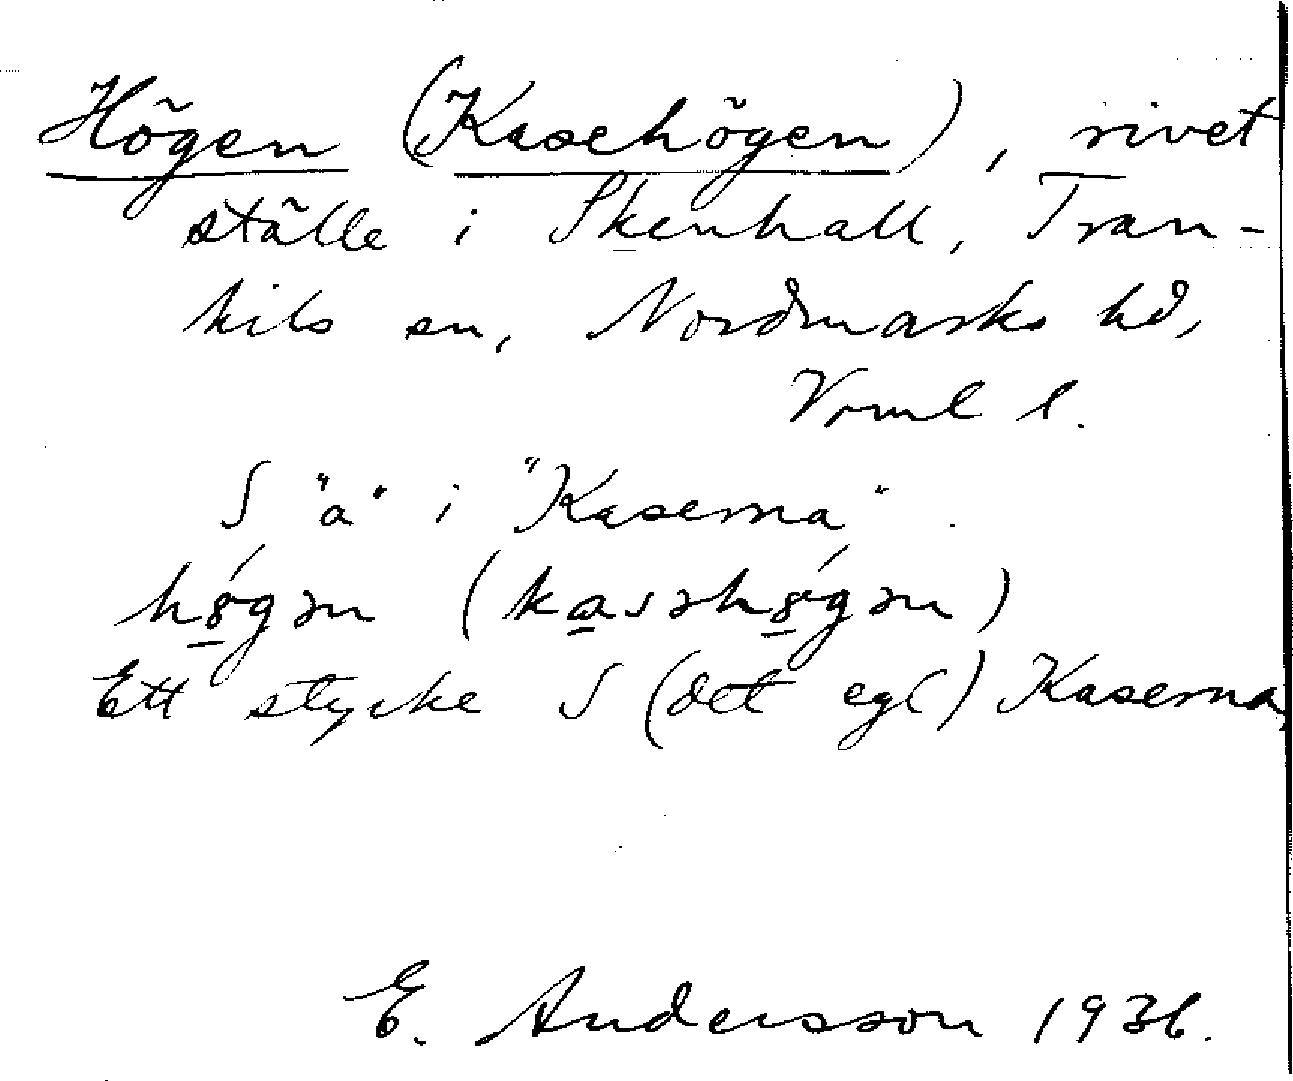 Högen (Kasehögen), rivet
ställe i Skenhall, Tran-
kils sn, Nordmarks hd,
Vrml l.
S "a" i "Kaserna".
hǿ̱gən (ka̱səhǿ̱gən)
Ett stycke S (det egl) Kaserna,
E. Andersson 1936.